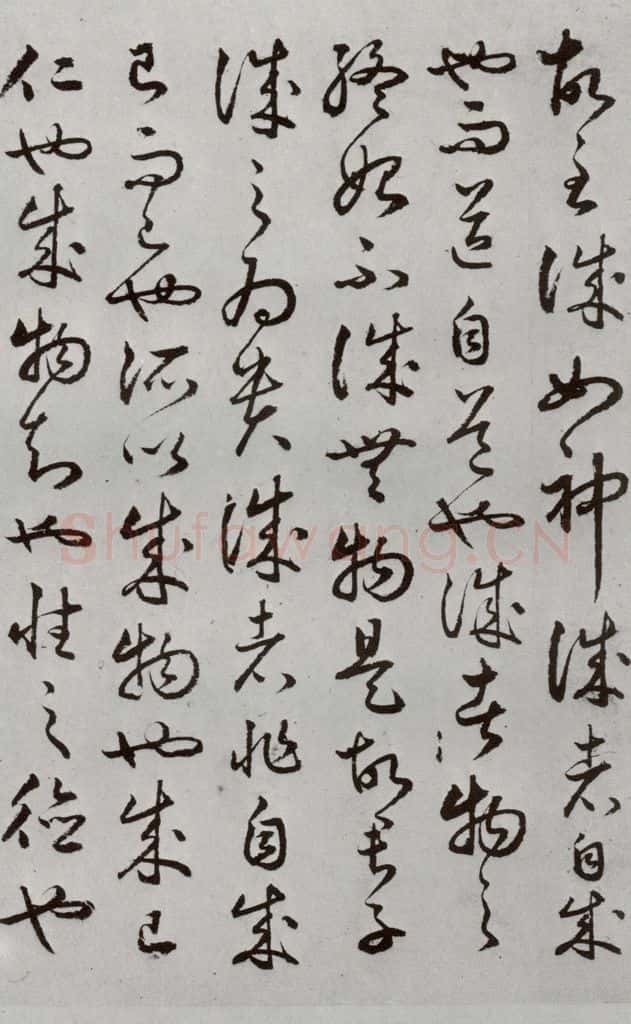 故至誠如神誠者自成
也而道自道也誠者物之
終始不誠無物是故君子
誠之為貴誠者非自成
己而已也所以成物也成己
仁也成物知也性之德也
Shufawang.CN